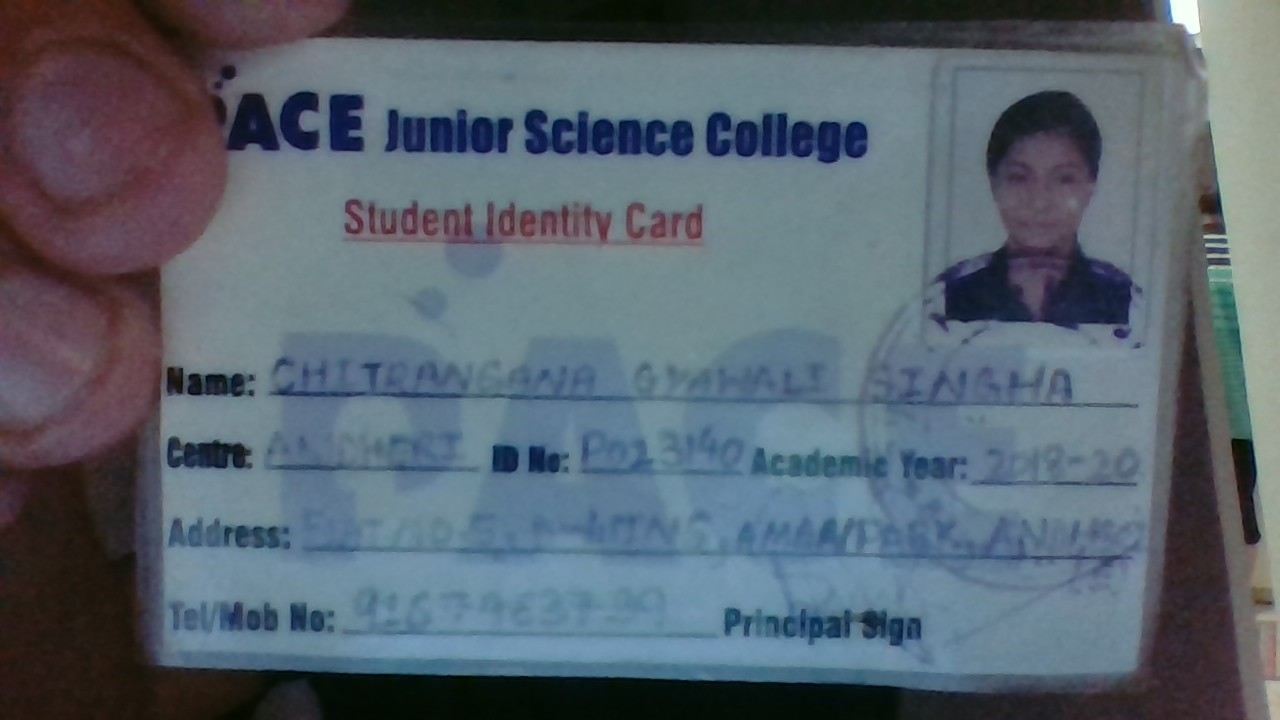 ACE Junior Science College
Student Identity Card
Name: CHITRANGANA GYAWALI SINGHA
Centre: ANDHERI ID No: P023140 Academic Year: 2018-20
Address: A-WING, PARK,
Tel/Mob No: Principal Sign
PAC